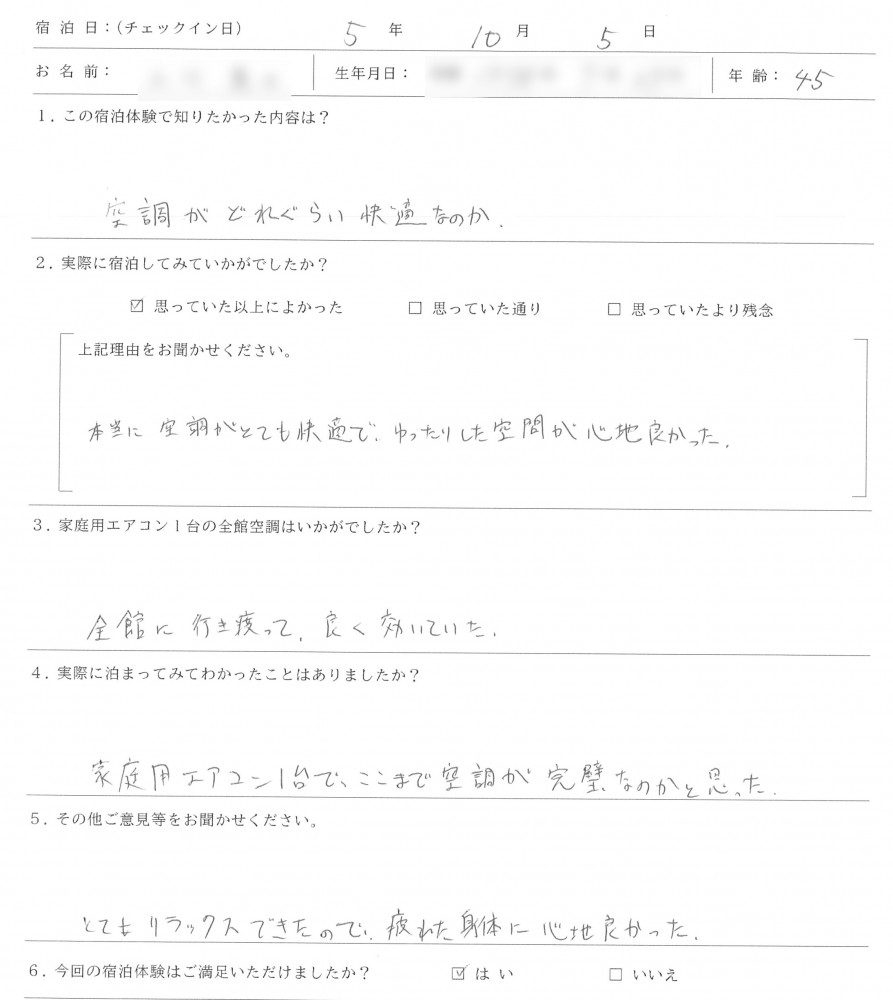 宿 泊 日：（チェックイン日） 5 年 10 月 5 日
お 名 前： 生年月日： 年 齢： 45
1．この宿泊体験で知りたかった内容は？
空調がどれぐらい快適なのか.
2．実際に宿泊してみていかがでしたか？
☑ 思っていた以上によかった □ 思っていた通り □ 思っていたより残念
上記理由をお聞かせください。
本当に空調がとても快適で、ゆったりした空間が心地良かった.
3．家庭用エアコン1台の全館空調はいかがでしたか？
全館に行き疲って、良く効いていた.
4．実際に泊まってみてわかったことはありましたか？
家庭用エアコン1台で、ここまで空調が完璧なのかと思った.
5．その他ご意見等をお聞かせください。
とてもリラックスできたので、疲れた身体に心地良かった.
6．今回の宿泊体験はご満足いただけましたか？ ☑ はい □ いいえ